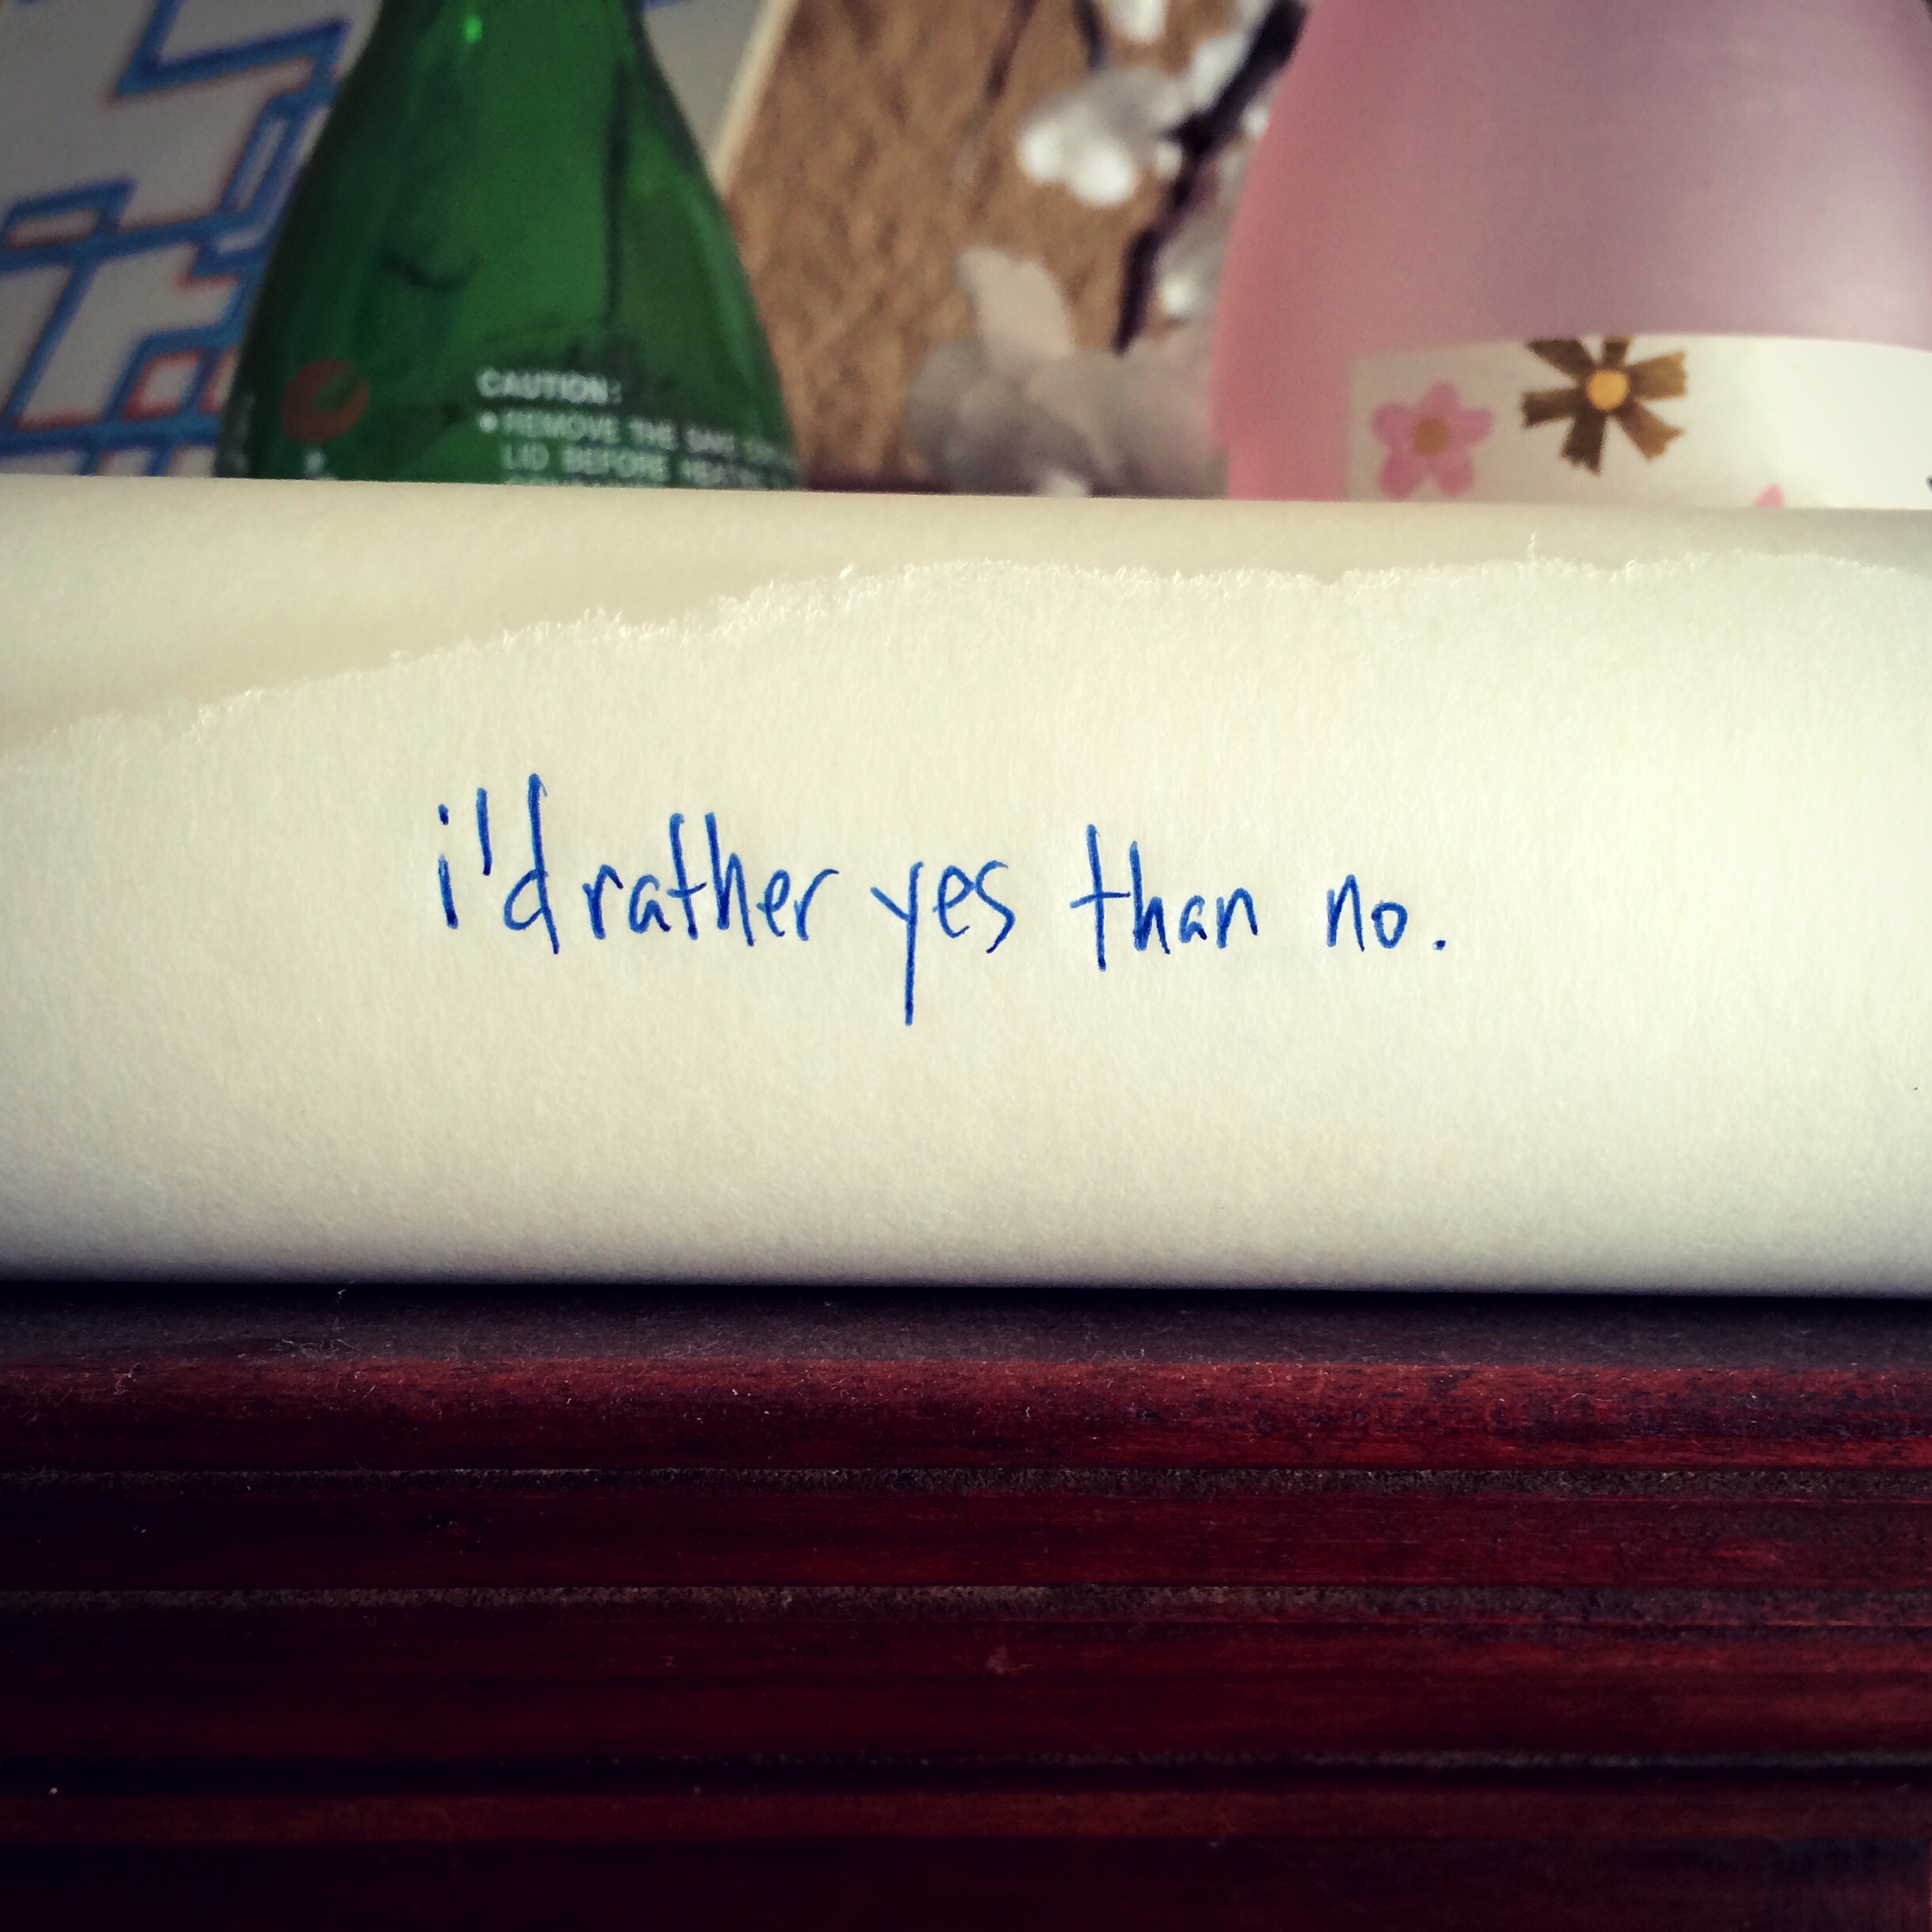 CAUTION:
• REMOVE THE
LID BEFORE
i'd rather yes than no.